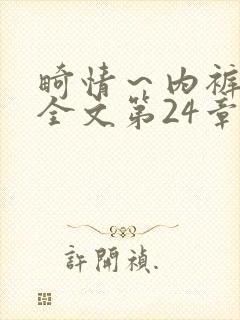 畸情～内裤
全文第24章
許開禎.